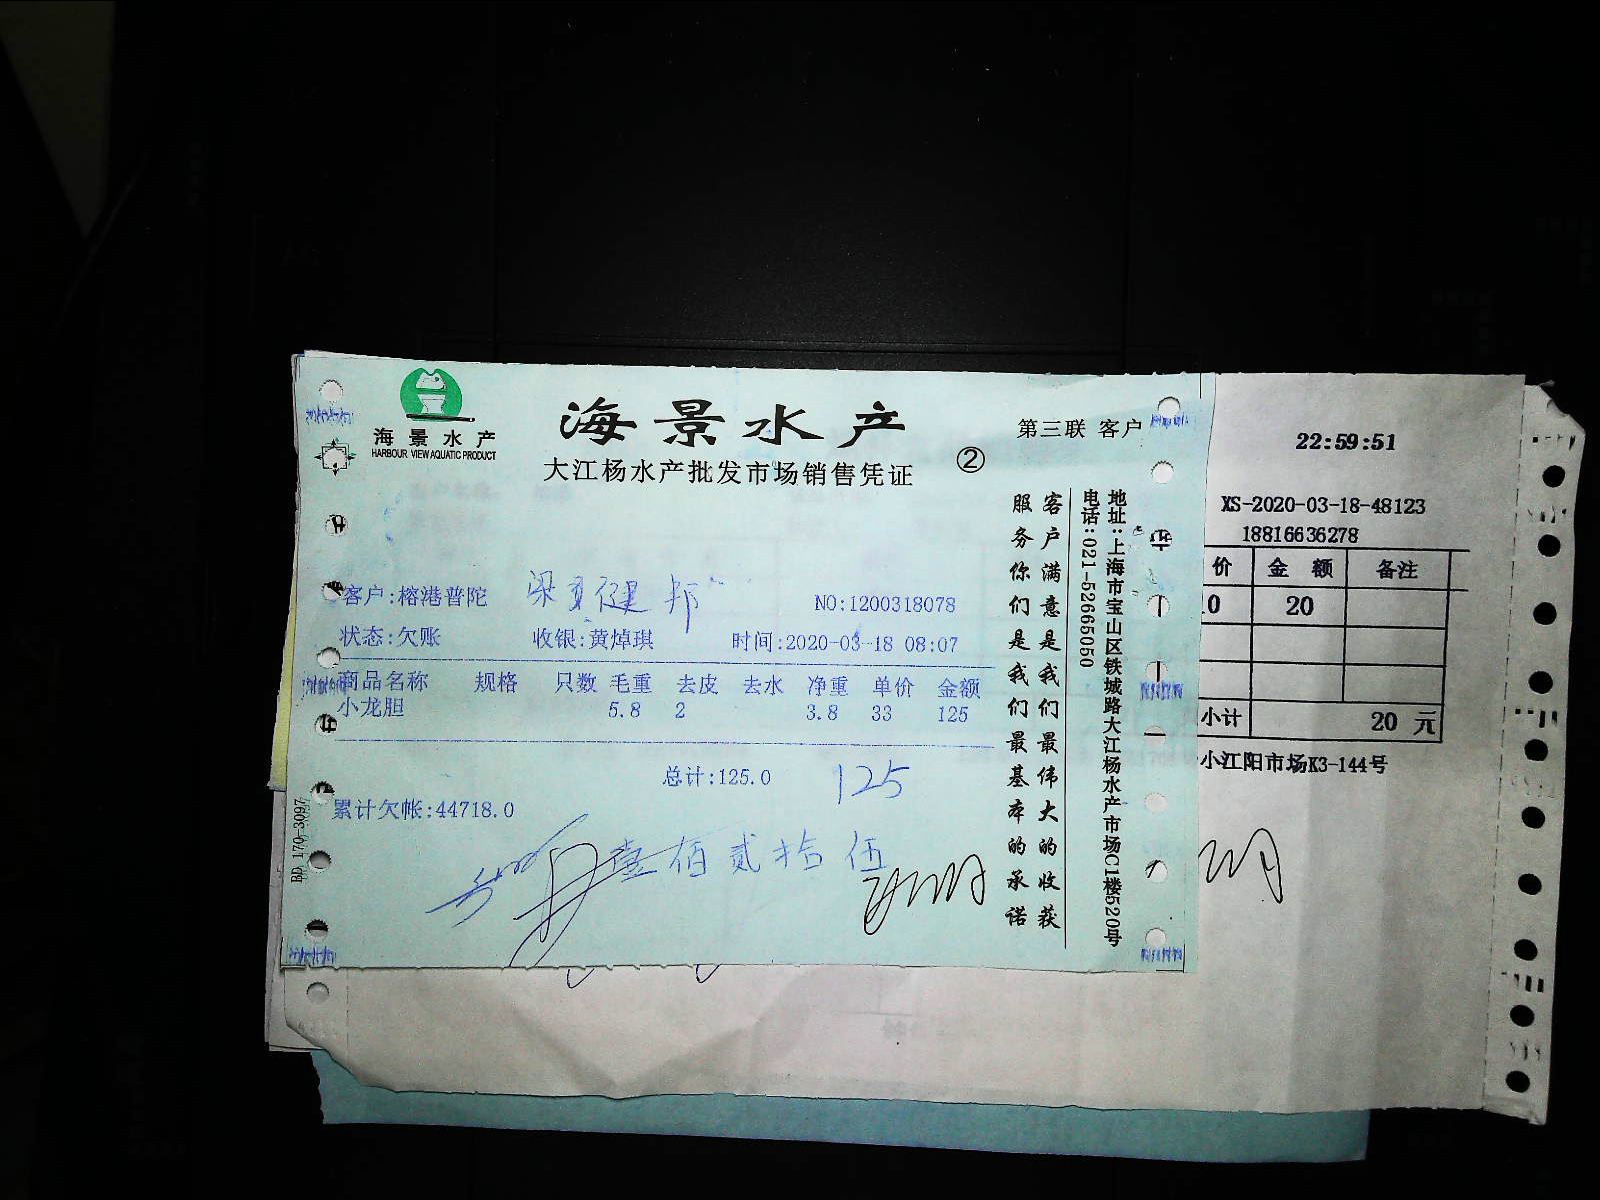 海景水产
HARBOUR VIEW AQUATIC PRODUCT
海景水产
大江杨水产批发市场销售凭证
②
第三联 客户
客户:榕港普陀
NO:1200318078
状态:欠账 收银:黄焯琪 时间:2020-03-18 08:07
商品名称 规格 只数 毛重 去皮 去水 净重 单价 金额
小龙胆 5.8 2 3.8 33 125
总计:125.0 125
累计欠帐:44718.0
壹佰贰拾伍
客户满意是我们最伟大的收获
服务你们是我们最基本的承诺
地址:上海市宝山区铁城路大江杨水产市场C1楼520号
电话:021-52665050
BD 170-3097
22:59:51
XS-2020-03-18-48123
18816636278
价 金额 备注
0 20
小计 20 元
小江阳市场K3-144号